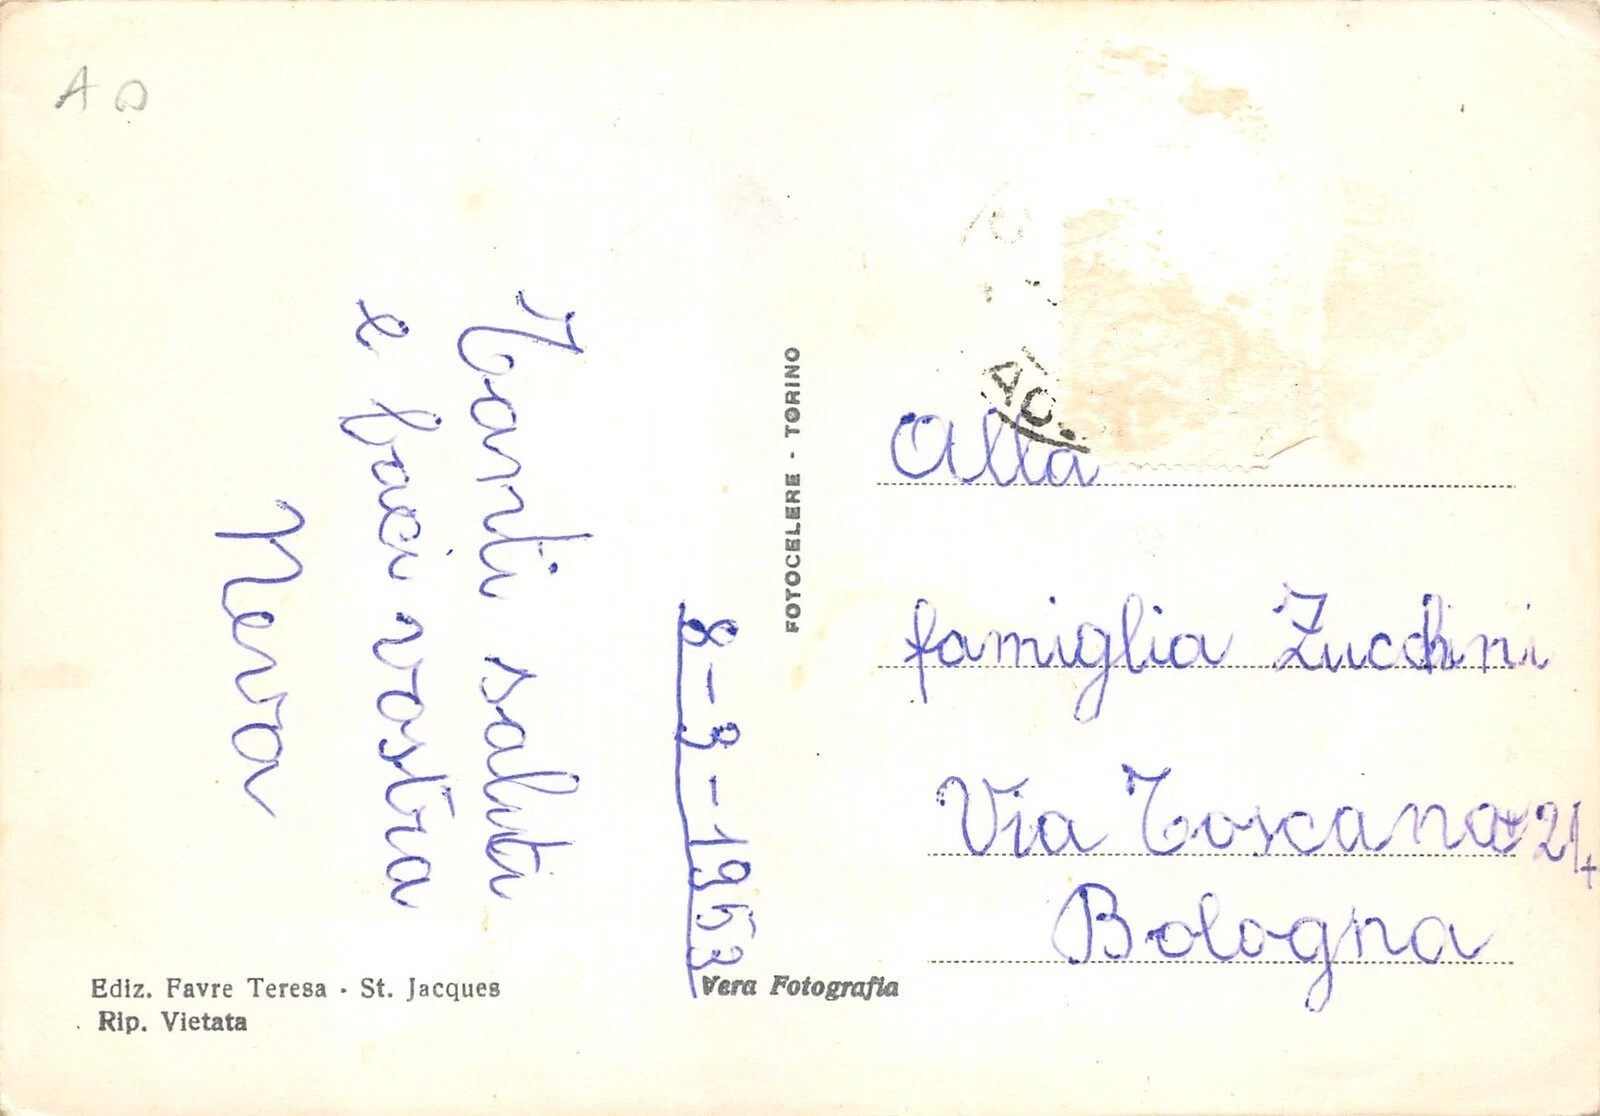 A O
Tanti saluti
e baci vostra
Neva
8-9-1963
FOTOCELERE - TORINO
AO.
Alla
famiglia Zucchini
Via Toscana 24
Bologna
Ediz. Favre Teresa - St. Jacques
Rip. Vietata
Vera Fotografia